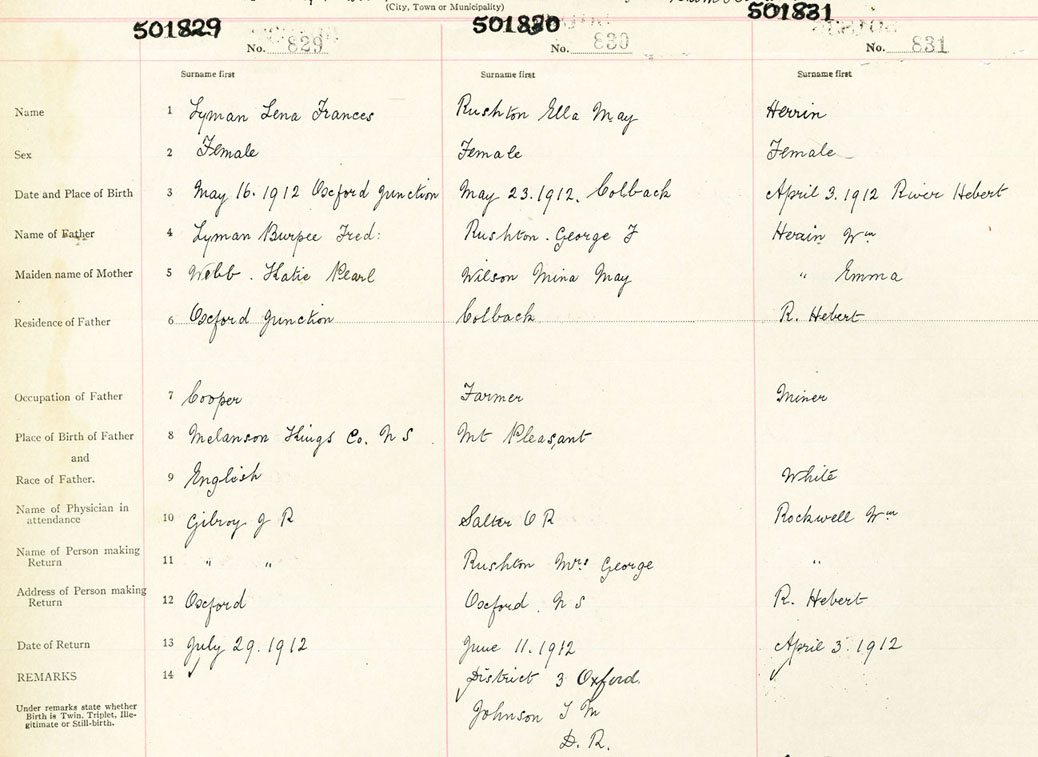 (City, Town or Municipality)
501829 501830 501831
No. 829 No. 830 No. 831
Surname first Surname first Surname first
Name 1 Lyman Lena Frances Rushton Ella May Herrin
Sex 2 Female Female Female
Date and Place of Birth 3 May 16. 1912 Oxford Junction May 23. 1912. Colback April 3. 1912 River Hebert
Name of Father 4 Lyman Burpee Fred: Rushton. George F Herrin Wm
Maiden name of Mother 5 Webb. Katie Pearl Wilson Mina May " Emma
Residence of Father 6 Oxford Junction Colback R. Hebert
Occupation of Father 7 Cooper Farmer Miner
Place of Birth of Father 8 Melanson Kings Co. N S. Mt Pleasant
and
Race of Father. 9 English White
Name of Physician in
attendance 10 Gilroy J R Salter C R Rockwell Wm
Name of Person making
Return 11 " " Rushton Mrs George "
Address of Person making
Return 12 Oxford Oxford. N S R. Hebert
Date of Return 13 July 29. 1912 June 11. 1912 April 3. 1912
REMARKS 14 District 3 Oxford.
Under remarks state whether
Birth is Twin, Triplet, Ille-
gitimate or Still-birth.
Johnson T M
D. R.